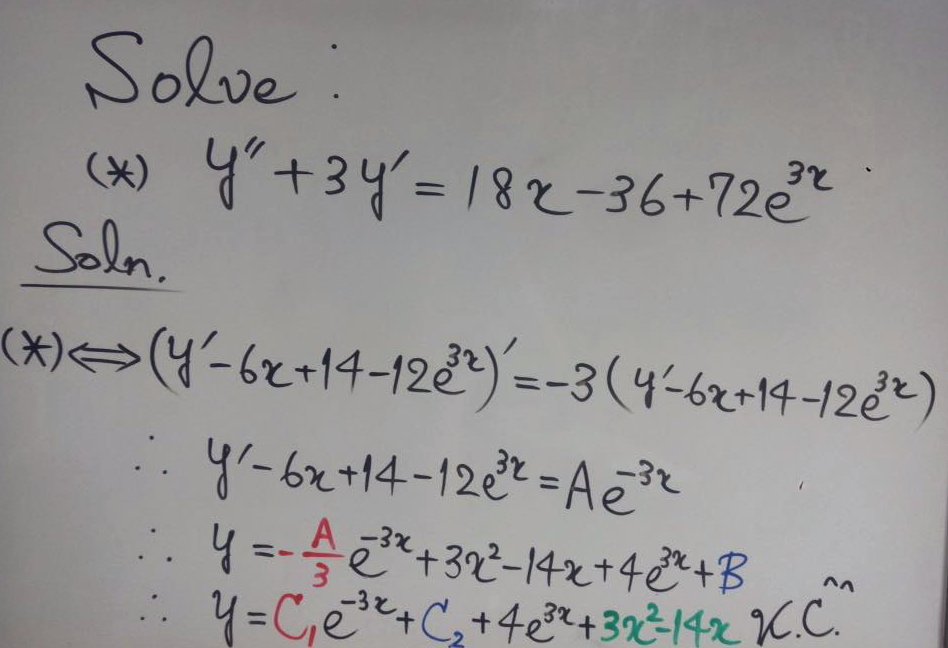 Solve :
(*) y″ + 3y′ = 18x − 36 + 72e^{3x}
Soln.
(*) ⟺ (y′ − 6x + 14 − 12e^{3x})′ = −3(y′ − 6x + 14 − 12e^{3x})
∴ y′ − 6x + 14 − 12e^{3x} = Ae^{−3x}
∴ y = −\frac{A}{3}e^{−3x} + 3x² − 14x + 4e^{3x} + B
∴ y = C₁e^{−3x} + C₂ + 4e^{3x} + 3x² − 14x K.C. ^^